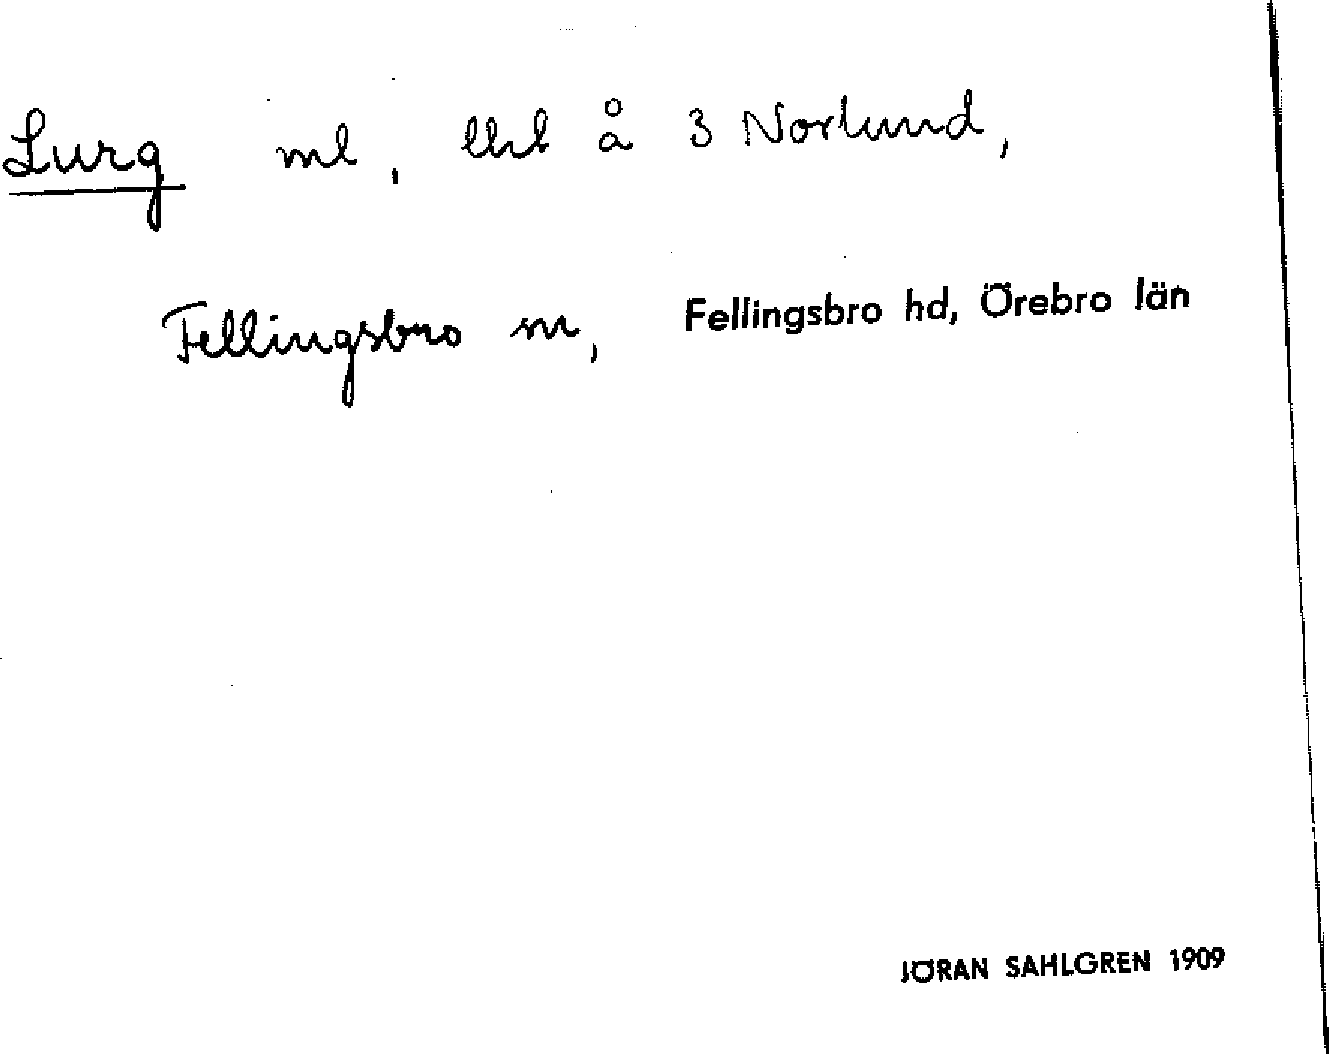 Lurg ml, å 3 Norlund,
Fellingsbro sn, Fellingsbro hd, Örebro län
JÖRAN SAHLGREN 1909